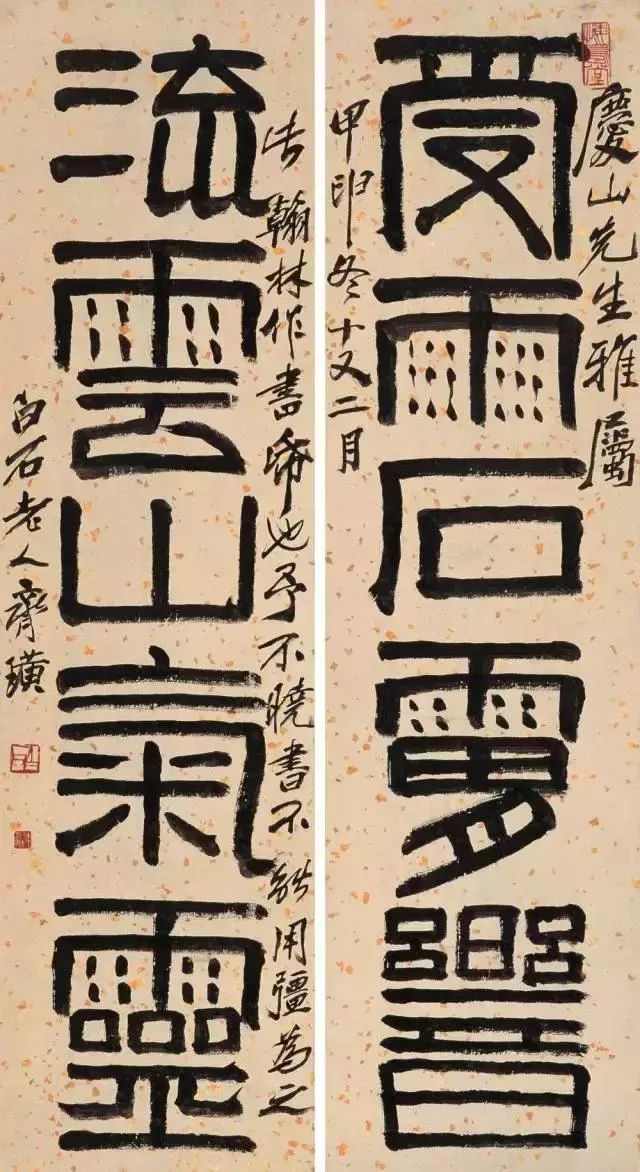 慶山先生雅屬
受雨石
甲申冬十又二月
翰林作書 也予不曉書不能用彊為之
流雲山氣靈
白石老人齊璜